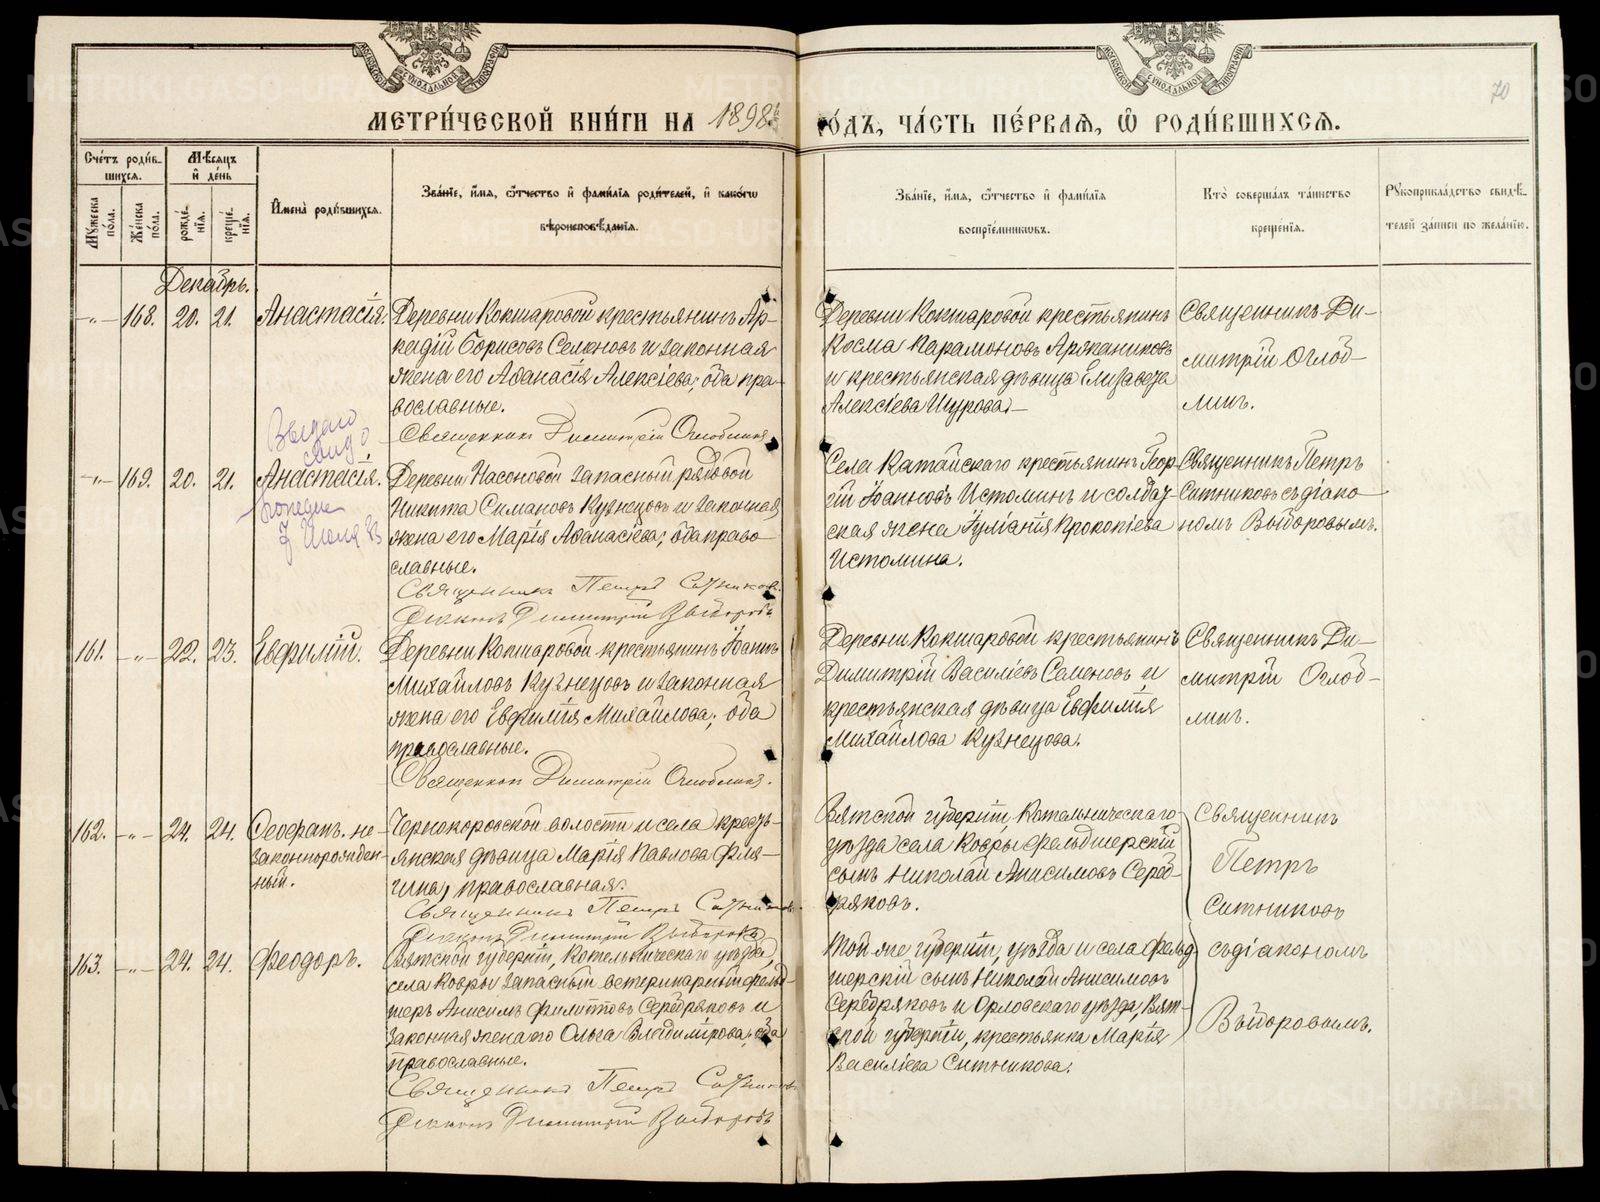 МОСКОВСКОЙ СѴНОДАЛЬНОЙ ТИПОГРАФІИ
МОСКОВСКОЙ СѴНОДАЛЬНОЙ ТИПОГРАФІИ
70
МЕТРИ́ЧЕСКОЙ КНИ́ГИ НА 1898й
ГО́ДЪ, ЧА́СТЬ ПЕ́РВАѦ, Ѡ҆ РОДИ́ВШИХСѦ.
Сче́тъ роди́в-
шихсѧ.
Мѣ́сѧцъ
и҆ де́нь
Мꙋ́жеска по́ла.
Же́нска по́ла.
рожде́-нїѧ.
креще́-нїѧ.
И҆мена̀ роди́вшихсѧ.
Зва́нїе, и҆́мѧ, ѻ҆́тчество и҆ фами́лїѧ роди́телей, и҆ како́гѡ
вѣроисповѣ́данїѧ.
Зва́нїе, и҆́мѧ, ѻ҆́тчество и҆ фами́лїѧ
воспрїе́мникѡвъ.
Кто̀ соверша́лъ та́инство
креще́нїѧ.
Рꙋкоприкла́дство свидѣ́-
телей за́писи по жела́нїю.
Декабрь.
-„- 168. 20. 21. Анастасія.
Деревни Кокшаровой крестьянинъ Ар-
кадій Борисовъ Семеновъ и законная
жена его Аѳанасія Алексіева; оба пра-
вославные.
Священник Димитрій Оглоблинъ
Деревни Кокшаровой крестьянинъ
Косма Парамоновъ Аржанниковъ
и крестьянская дѣвица Елизавета
Алексіева Щурова.
Священникъ Ди-
митрій Оглоб-
линъ.
Выдано
-„- 169. 20. 21. Анастасія.
Июля
Деревни Насоновой запасный рядовой
Никита Симановъ Кузнецовъ и законная
жена его Марія Аѳанасіева; оба право-
славные.
Священникъ Петръ Ситниковъ
Діаконъ Димитрій Выборовъ
Села Катайскаго крестьянинъ Геор-
гій Іоанновъ Истоминъ и солдат-
ская жена Іуліанія Прокопіева
Истомина.
Священникъ Петръ
Ситниковъ съ діако-
номъ Выборовымъ.
161. -„- 22. 23. Евфимій.
Деревни Кокшаровой крестьянинъ Іоаннъ
Михайловъ Кузнецовъ и законная
жена его Евфимія Михайлова; оба
православные.
Священник Димитрій Оглоблинъ.
Деревни Кокшаровой крестьянинъ
Димитрій Василіевъ Семеновъ и
крестьянская дѣвица Евфимія
Михайлова Кузнецова.
Священникъ Ди-
митрій Оглоб-
линъ.
162. -„- 24. 24. Ѳеофанъ. не-
законнорожден-
ный.
Чернокоровской волости и села кресть-
янская дѣвица Марія Павлова Филя-
гина, православная.
Священникъ Петръ Ситниковъ
Діаконъ Димитрій Выборовъ
Вятской губерніи, Котельническаго
уѣзда села Ковры фельдшерскій
сынъ Николай Анисимовъ Сереб-
ряковъ.
Священникъ
Петръ
Ситниковъ
съ діакономъ
Выборовымъ.
163. -„- 24. 24. Ѳеодоръ.
Вятской губерніи, Котельническаго уѣзда,
села Ковры запасный ветеринарный фельд-
шеръ Анисимъ Филиповъ Серебряковъ и
законная жена его Ольга Владимірова, оба
православные.
Священникъ Петръ Ситниковъ
Діаконъ Димитрій Выборовъ
Той же губерніи, уѣзда и села фельд-
шерскій сынъ Николай Анисимовъ
Серебряковъ и Орловскаго уѣзда, Вят-
ской губерніи, крестьянка Марія
Василіева Ситникова.